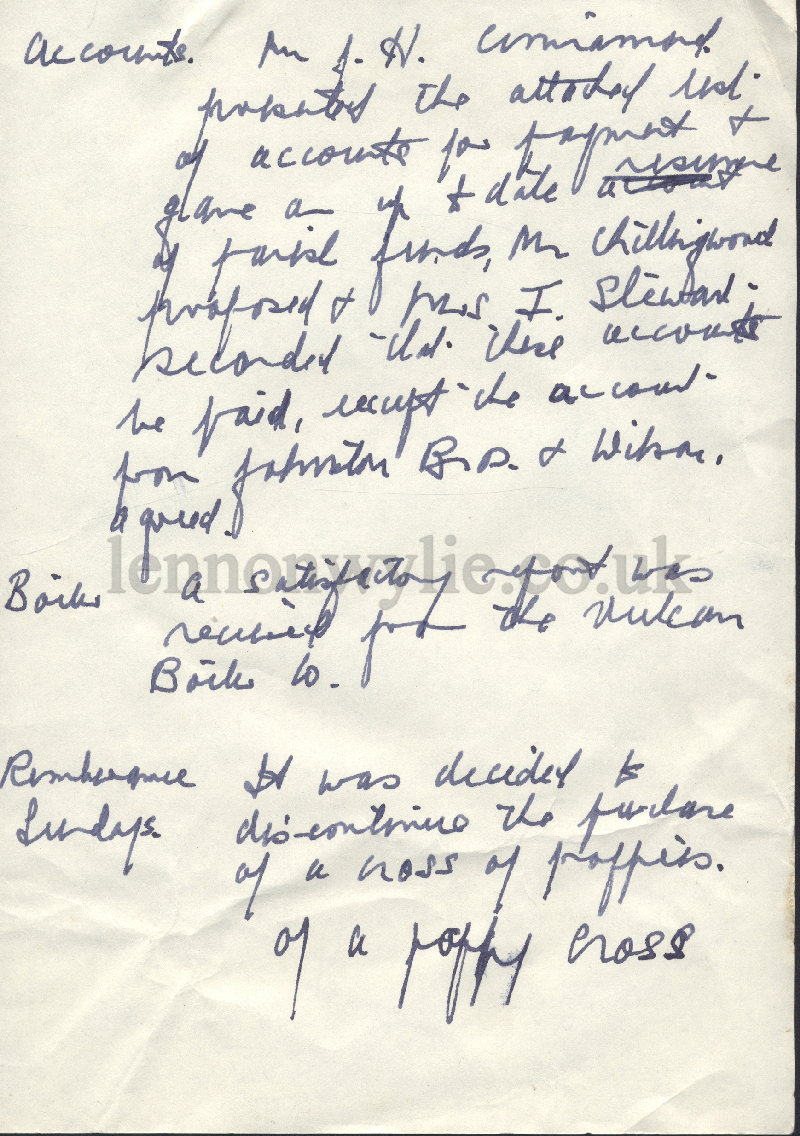 Accounts. Mr J. H. Cunninamond.
presented the attached list
of accounts for payment &
gave an up to date account resume
of parish funds, Mr Chillingword
proposed & Mrs I. Stewart
seconded that these accounts
be paid, except the account
from Johnston Bros. & Wilson.
agreed.
lennonwylie.co.uk
Boiler A satisfactory report was
received from the Vulcan
Boiler Co.
Rembrance It was decided to
Sunday. dis-continue the purchase
of a cross of poppies.
of a poppy cross